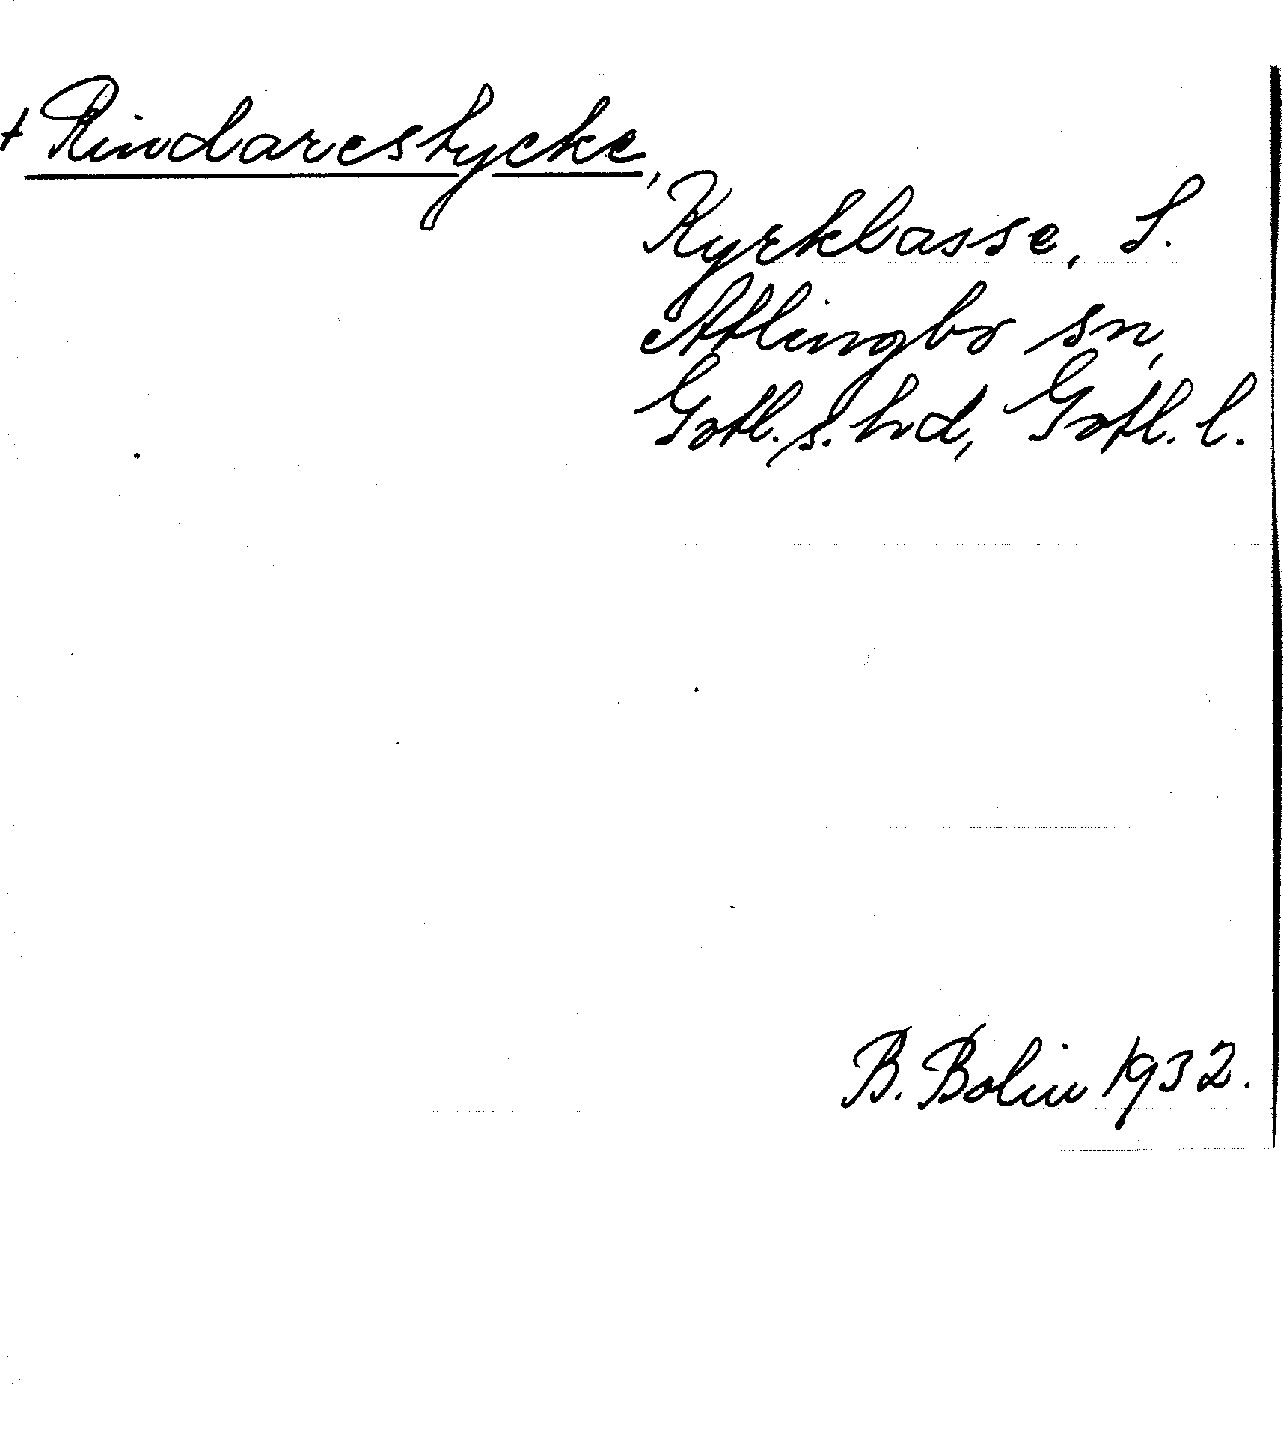 + Rindarestycke,
Kyrklasse, S.
Atlingbo sn,
Gotl. s. hd, Gotl. l.
B. Bolin 1932.